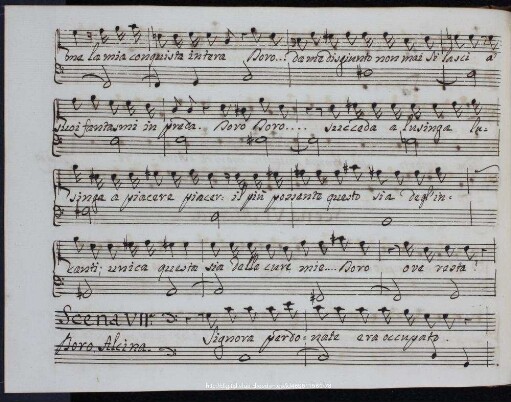 me la mia conquista intera Boro... da me disgiunto non mai si lasci a
suoi fantasmi in preda. Boro Boro.... succeda a lusinga lu=
singa a piacere piacer: il più possente questo sia degl'in=
canti; unica questa sia delle cure mie.... Boro ove resta?
Scena VII:
Signora perdo=nate era occupato.
Boro, Alcina.